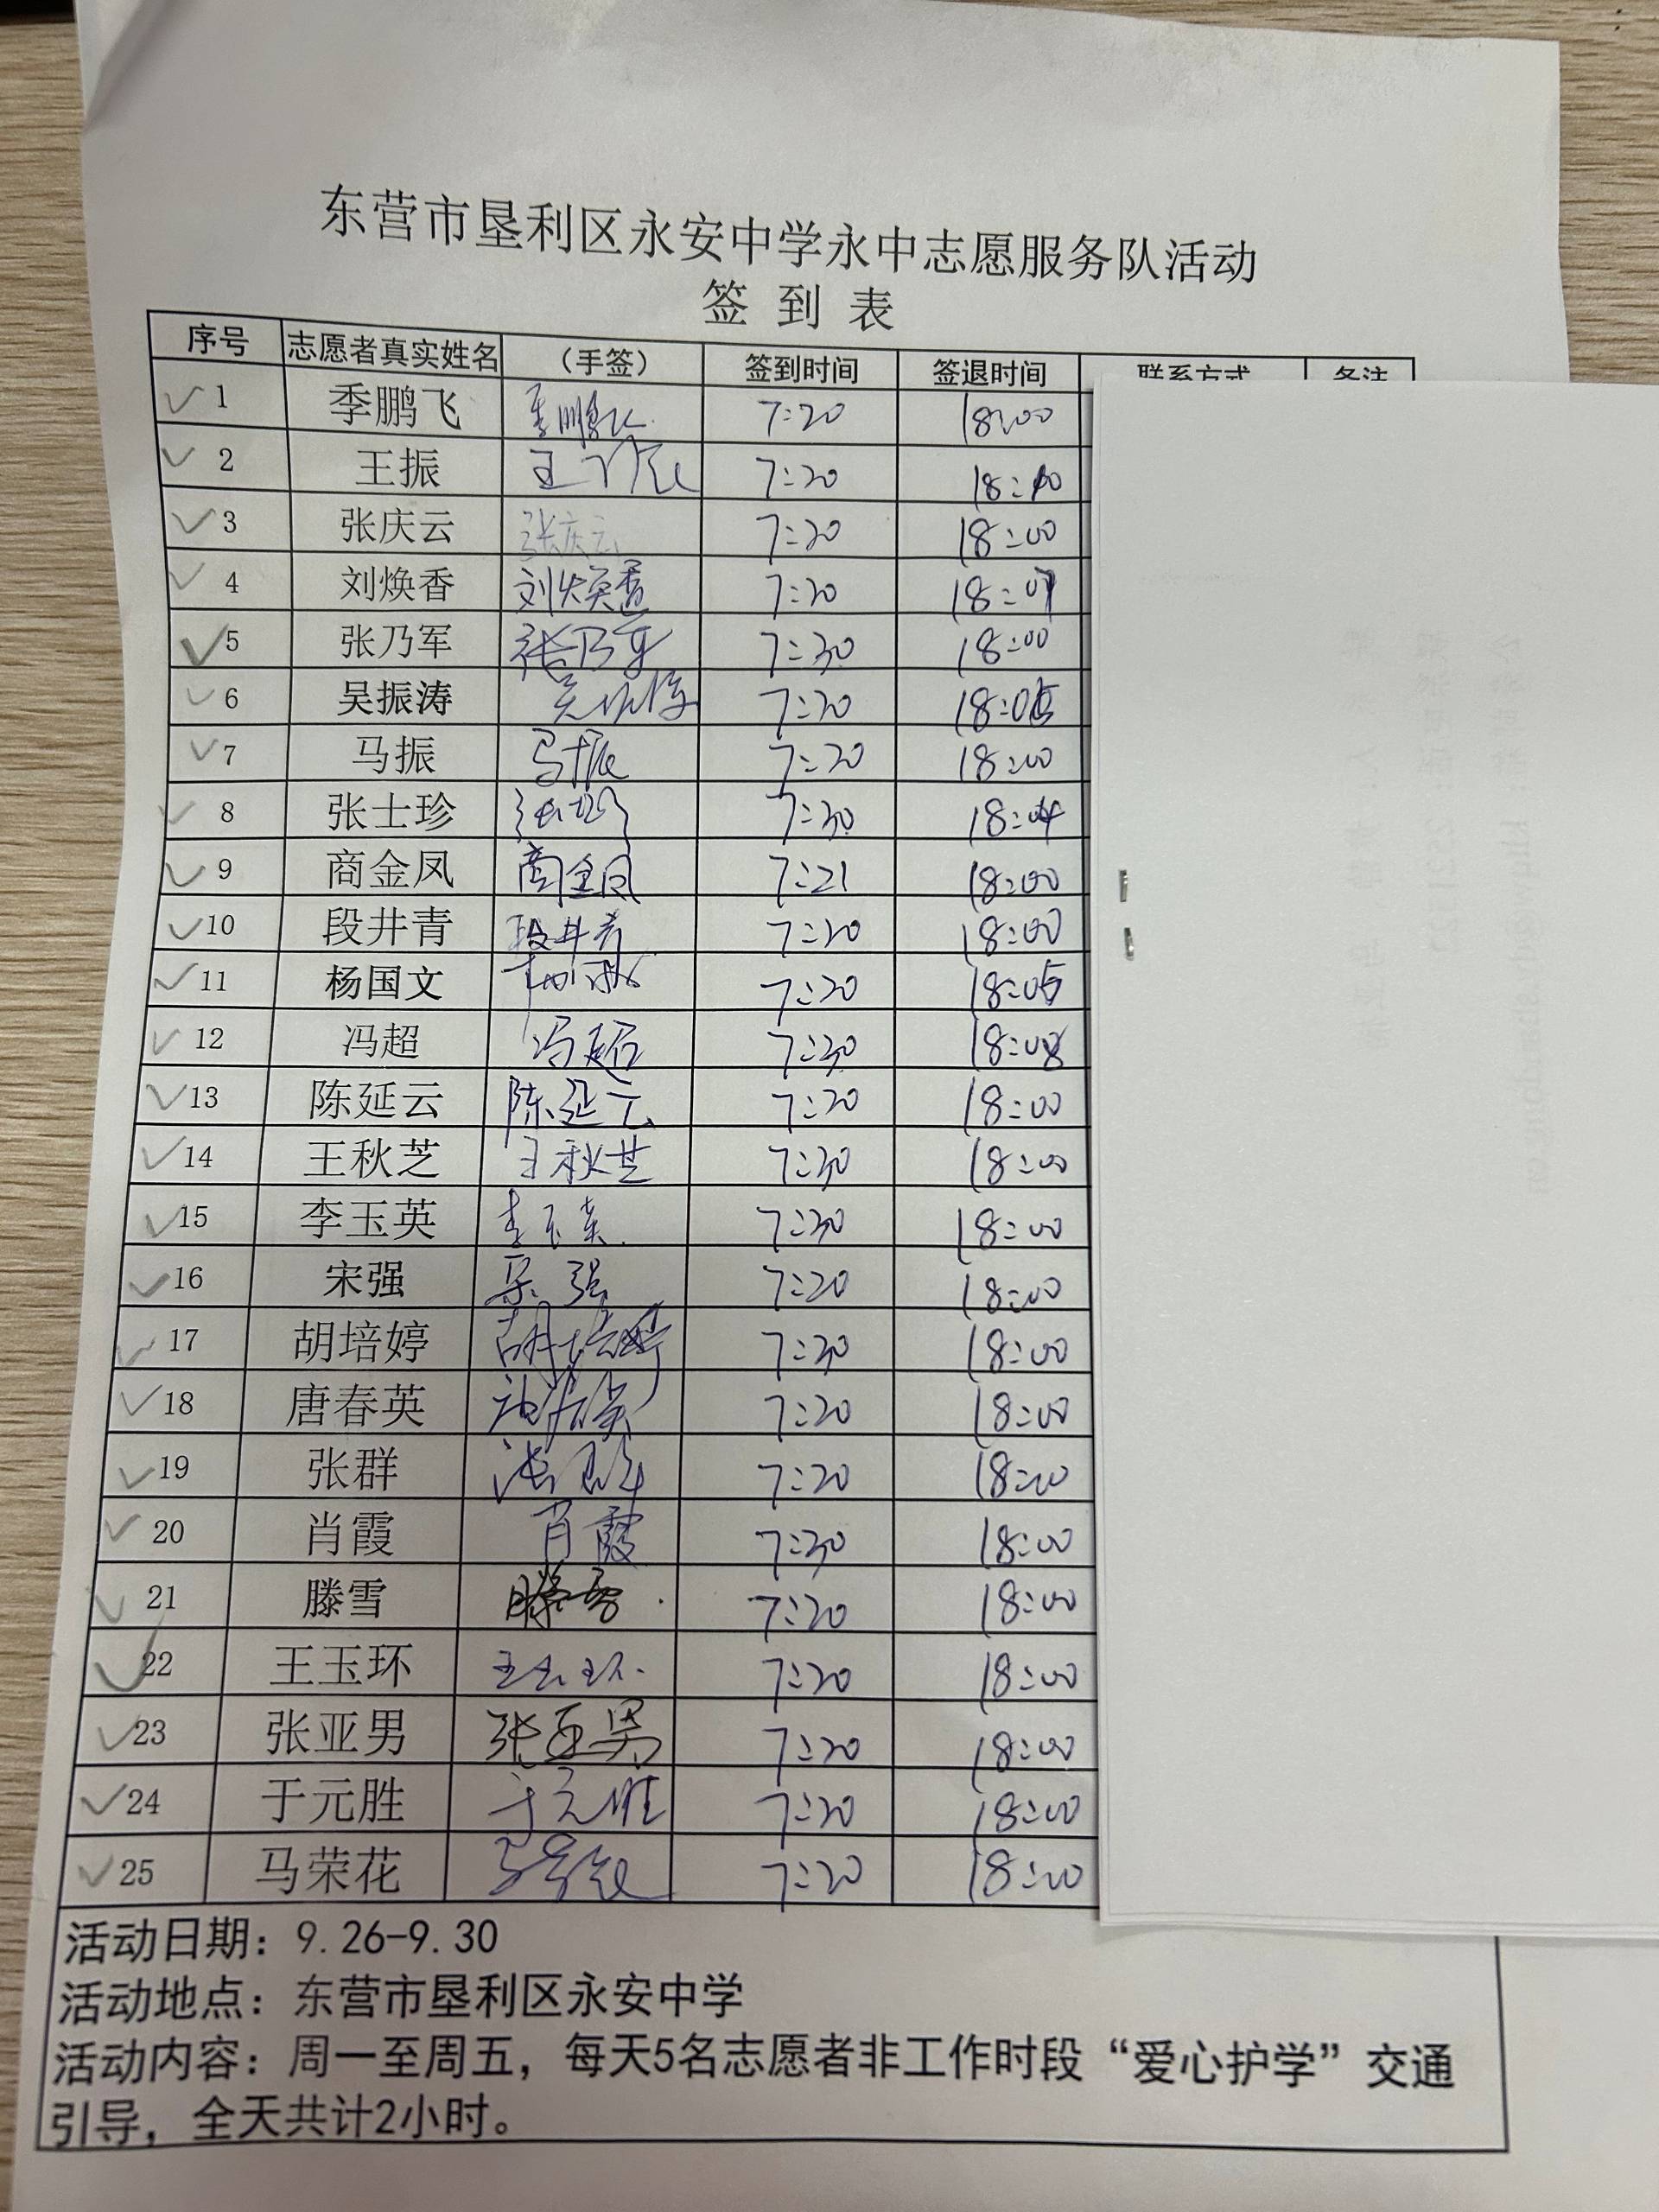 东营市垦利区永安中学永中志愿服务队活动
签 到 表
序号 志愿者真实姓名 （手签） 签到时间 签退时间 联系方式 备注
1 季鹏飞 季鹏飞 7:20 18:00
2 王振 王振 7:20 18:10
3 张庆云 张庆云 7:20 18:00
4 刘焕香 刘焕香 7:20 18:01
5 张乃军 张乃军 7:30 18:00
6 吴振涛 7:20 18:05
7 马振 马振 7:20 18:00
8 张士珍 7:30 18:04
9 商金凤 商金凤 7:21 18:00
10 段井青 段井青 7:20 18:00
11 杨国文 7:20 18:05
12 冯超 冯超 7:30 18:08
13 陈延云 陈延云 7:20 18:00
14 王秋芝 王秋芝 7:30 18:00
15 李玉英 李玉英 7:30 18:00
16 宋强 宋强 7:20 18:00
17 胡培婷 胡培婷 7:30 18:00
18 唐春英 7:20 18:00
19 张群 张群 7:20 18:00
20 肖霞 肖霞 7:30 18:00
21 滕雪 滕雪 7:20 18:00
22 王玉环 王玉环 7:20 18:00
23 张亚男 张亚男 7:20 18:00
24 于元胜 于元胜 7:20 18:00
25 马荣花 马荣花 7:20 18:00
活动日期：9.26-9.30
活动地点：东营市垦利区永安中学
活动内容：周一至周五，每天5名志愿者非工作时段“爱心护学”交通
引导，全天共计2小时。